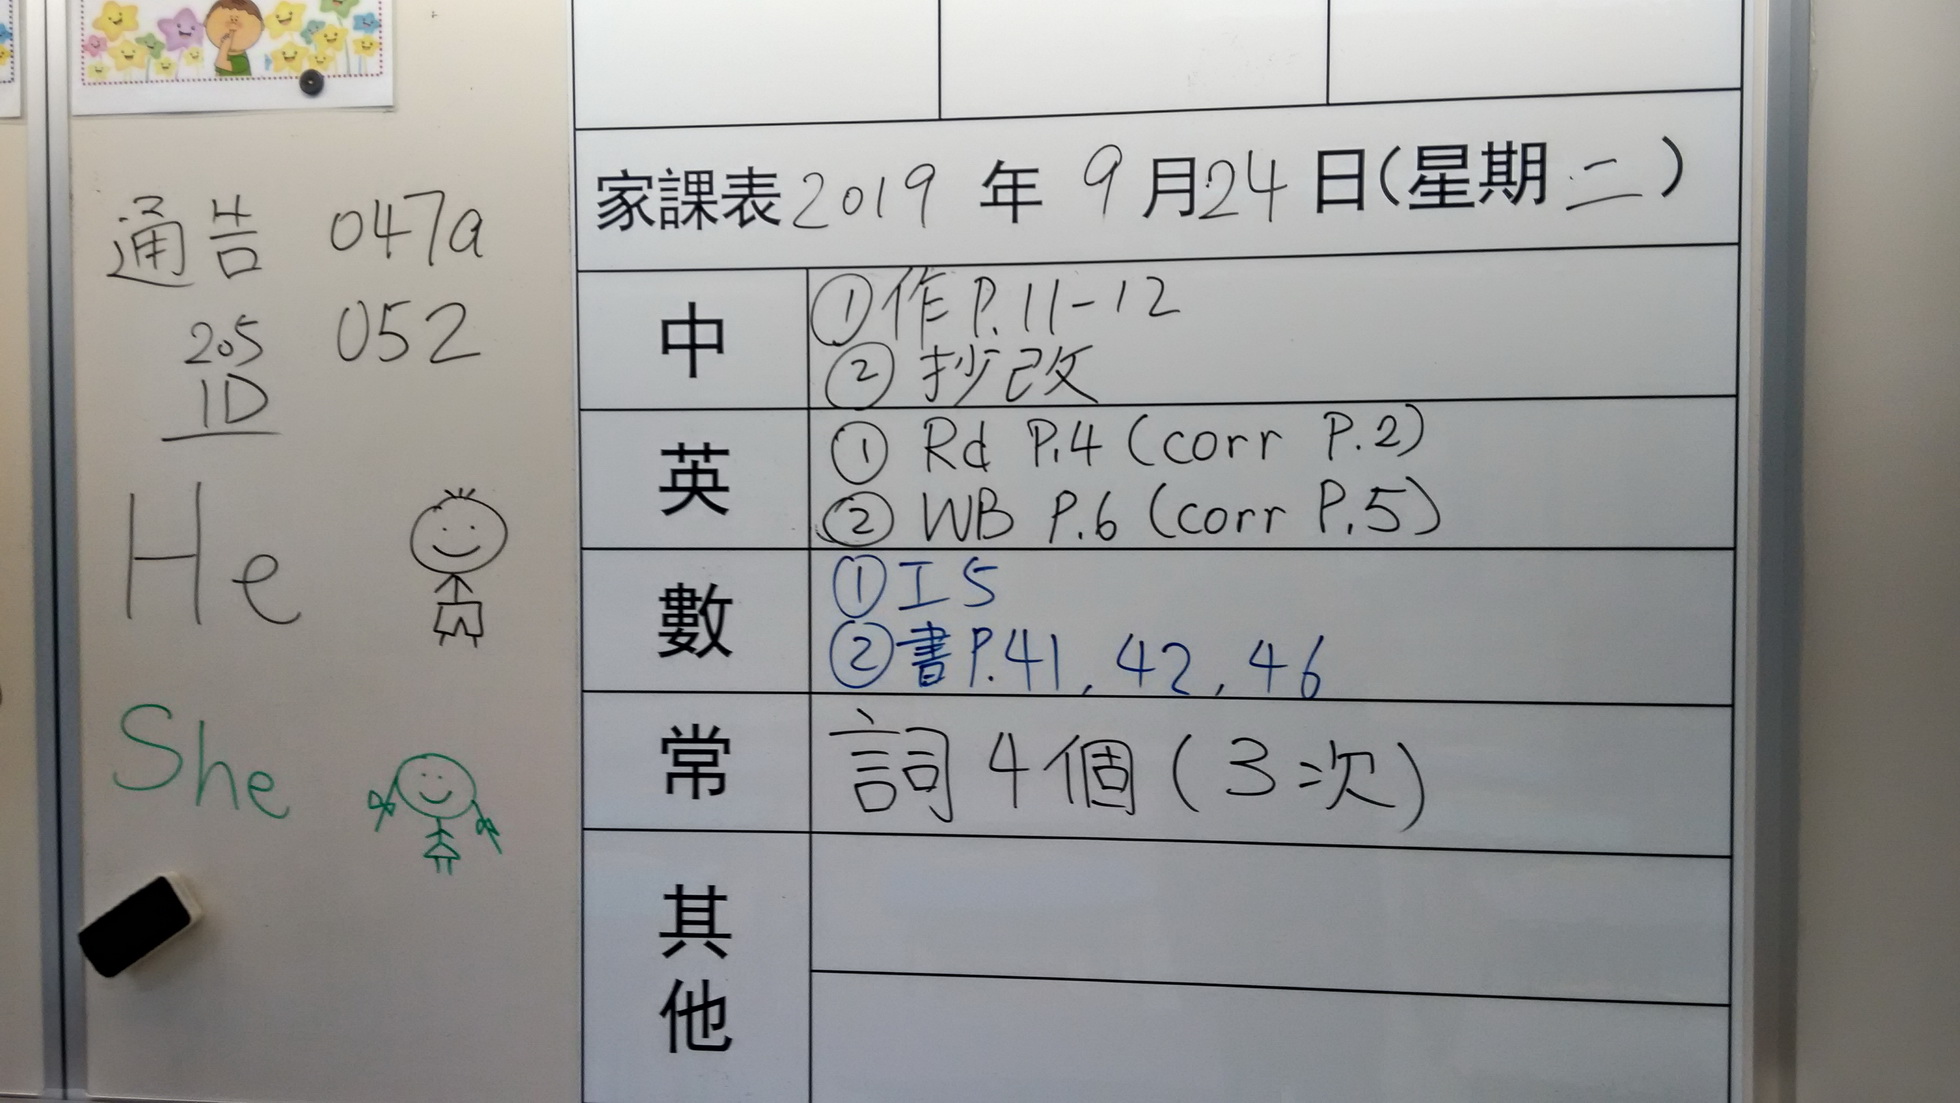 通告 047a
052
205
1D
He
She
家課表2019年9月24日(星期二)
中
①作P.11-12
②抄改
英
① Rd P.4 (corr P.2)
② WB P.6 (corr P.5)
數
①工5
②書P.41, 42, 46
常
詞4個(3次)
其他